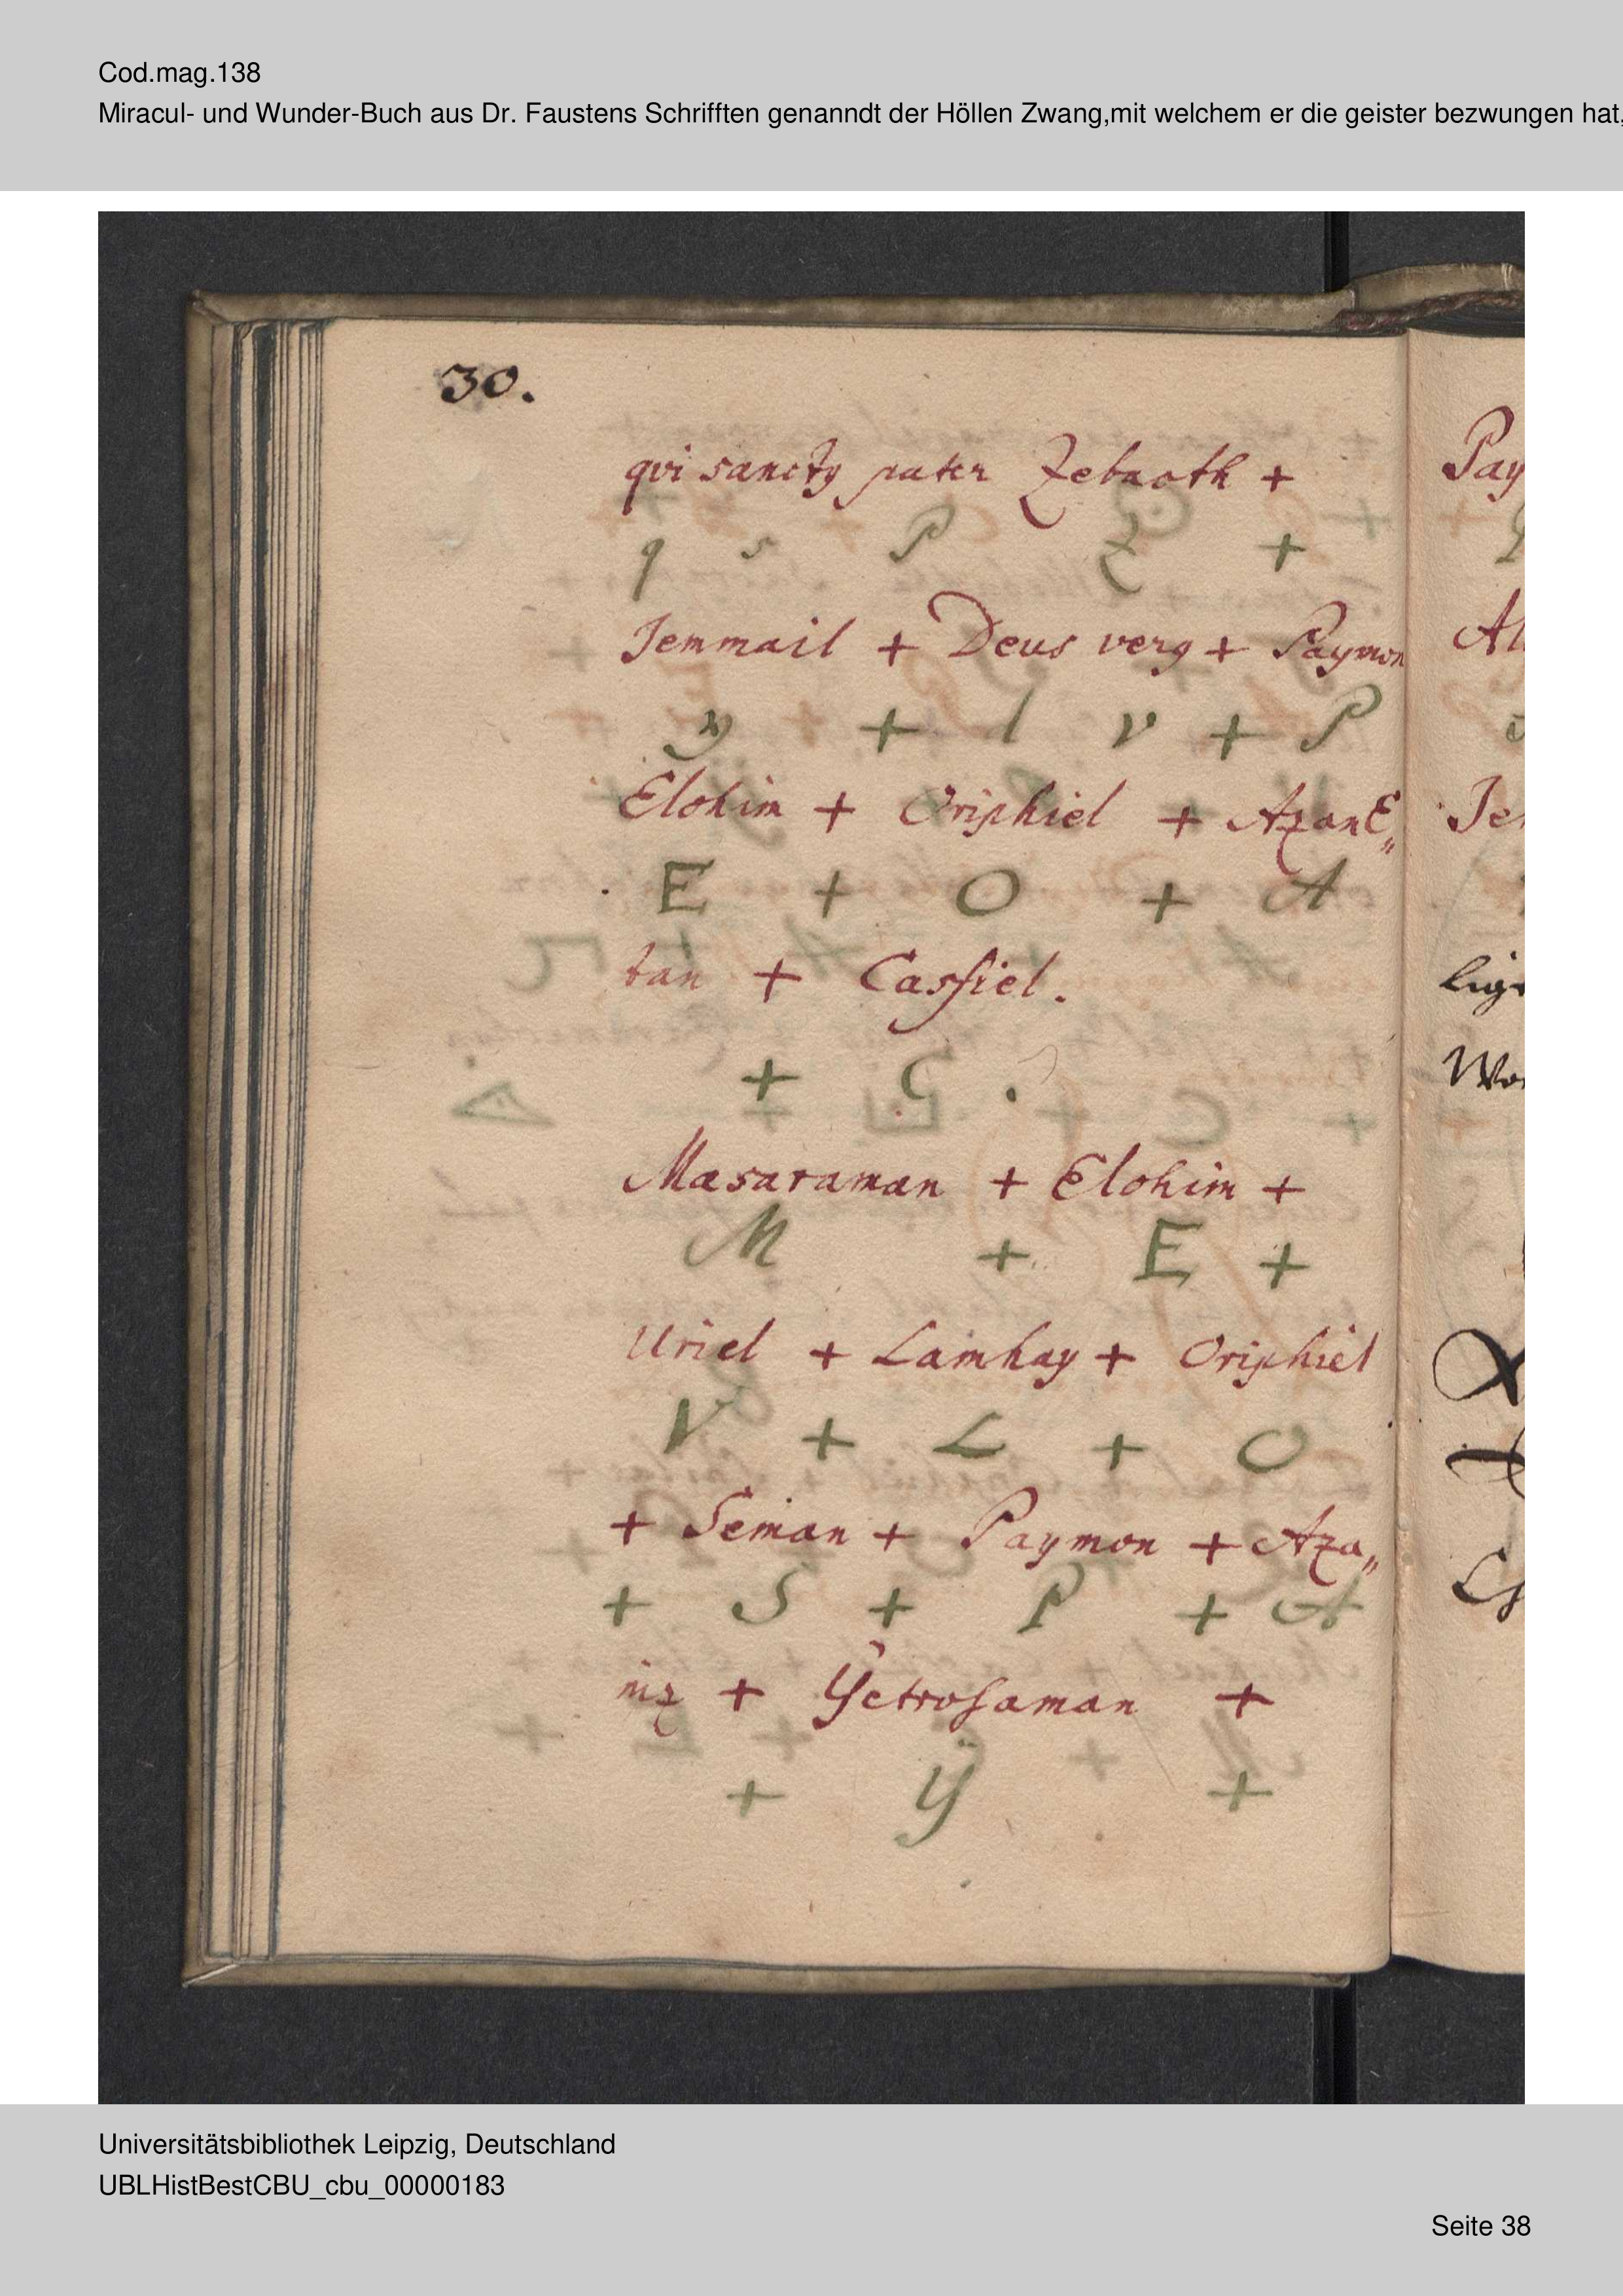 Cod.mag.138
Miracul- und Wunder-Buch aus Dr. Faustens Schrifften genanndt der Höllen Zwang,mit welchem er die geister bezwungen hat,
30.
qui sancty pater Zebaoth +
q s P Z +
Jemmail + Deus very + Paymon
y + d v + P
Elohim + Oriphiel + Azan
E + O + A
tan + Casfiel.
+ C .
Masaraman + Elohim +
M + E +
Uriel + Lamhay + Oriphiel
V + L + O
+ Seman + Paymon + Aza„
+ S + P + A
niz + Ÿetrosaman +
+ Ÿ +
Pay
Al
Je
lig
Wo
Universitätsbibliothek Leipzig, Deutschland
UBLHistBestCBU_cbu_00000183
Seite 38